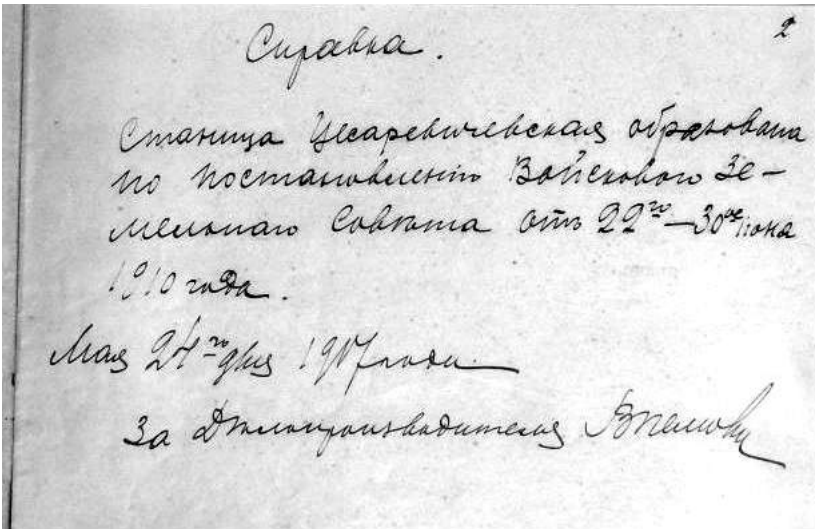 2
Справка.
Станица Цесаревичевская образована
по постановленію Войскового Зе-
мельнаго Совѣта отъ 22го — 30го іюня
1910 года.
Мая 24го дня 1917 года.
За Дѣлопроизводителя